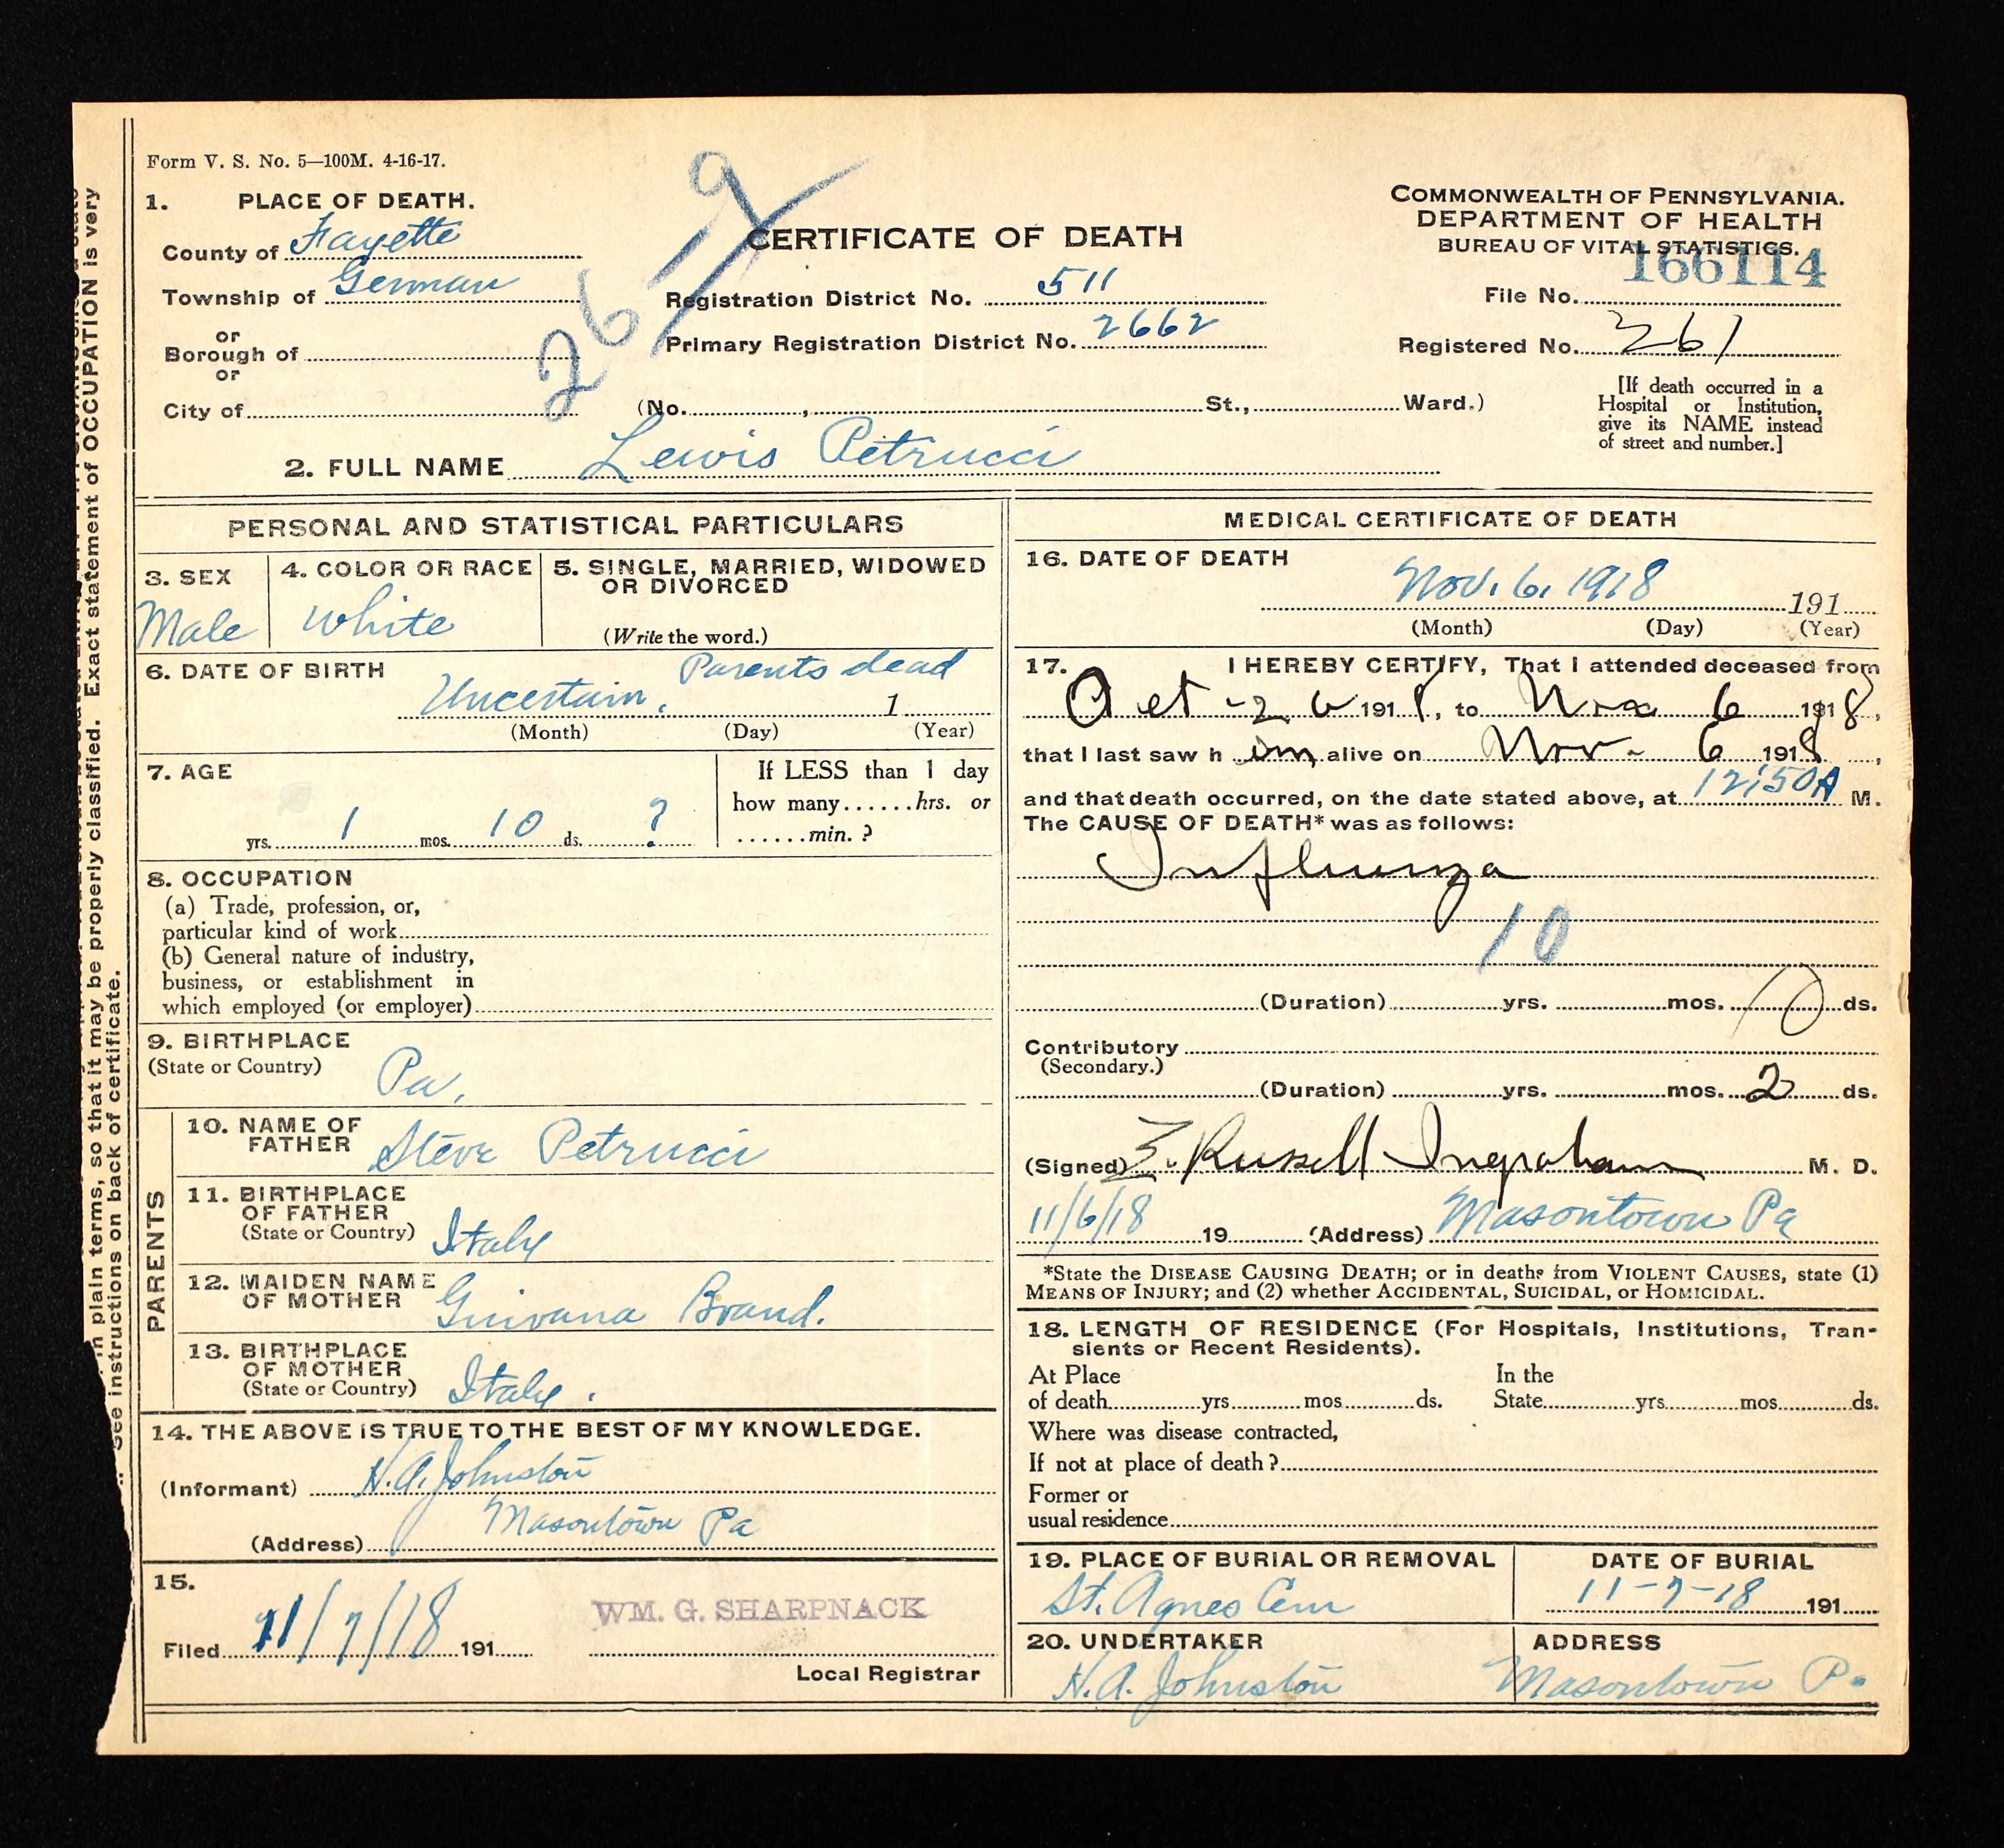 Form V. S. No. 5—100M. 4-16-17.
1. PLACE OF DEATH.
County of Fayette
Township of German
or
Borough of
or
City of
26
9
CERTIFICATE OF DEATH
Registration District No. 511
Primary Registration District No. 2662
(No. , St., Ward.)
COMMONWEALTH OF PENNSYLVANIA.
DEPARTMENT OF HEALTH
BUREAU OF VITAL STATISTICS.
166114
File No.
Registered No. 361
[If death occurred in a
Hospital or Institution,
give its NAME instead
of street and number.]
2. FULL NAME Lewis Petrucci
PERSONAL AND STATISTICAL PARTICULARS
3. SEX
Male
4. COLOR OR RACE
White
5. SINGLE, MARRIED, WIDOWED
OR DIVORCED
(Write the word.)
6. DATE OF BIRTH
Parents dead
Uncertain. 1
(Month) (Day) (Year)
7. AGE
1 yrs. 10 mos. ? ds.
If LESS than 1 day
how many......hrs. or
......min. ?
8. OCCUPATION
(a) Trade, profession, or,
particular kind of work
(b) General nature of industry,
business, or establishment in
which employed (or employer)
9. BIRTHPLACE
(State or Country)
Pa.
PARENTS
10. NAME OF
FATHER
Steve Petrucci
11. BIRTHPLACE
OF FATHER
(State or Country) Italy
12. MAIDEN NAME
OF MOTHER
Guivana Brand.
13. BIRTHPLACE
OF MOTHER
(State or Country) Italy.
14. THE ABOVE IS TRUE TO THE BEST OF MY KNOWLEDGE.
(Informant) H.A. Johnston
(Address) Masontown Pa
15.
Filed 11/7/18 191
WM. G. SHARPNACK
Local Registrar
MEDICAL CERTIFICATE OF DEATH
16. DATE OF DEATH
Nov. 6, 1918 191
(Month) (Day) (Year)
17. I HEREBY CERTIFY, That I attended deceased from
Oct - 26 1918, to Nov 6 1918,
that I last saw h im alive on Nov - 6 1918,
and that death occurred, on the date stated above, at 12:50A M.
The CAUSE OF DEATH* was as follows:
Influenza
10
(Duration) yrs. mos. 10 ds.
Contributory
(Secondary.)
(Duration) yrs. mos. 2 ds.
(Signed) E. Russell Ingraham M. D.
11/6/18 19 (Address) Masontown Pa
*State the DISEASE CAUSING DEATH; or in deaths from VIOLENT CAUSES, state (1)
MEANS OF INJURY; and (2) whether ACCIDENTAL, SUICIDAL, or HOMICIDAL.
18. LENGTH OF RESIDENCE (For Hospitals, Institutions, Tran-
sients or Recent Residents).
At Place
of death yrs mos ds.
In the
State yrs mos ds.
Where was disease contracted,
If not at place of death?
Former or
usual residence
19. PLACE OF BURIAL OR REMOVAL
St. Agnes Cem
DATE OF BURIAL
11-7-18 191
20. UNDERTAKER
H.A. Johnston
ADDRESS
Masontown Pa
Exact statement of OCCUPATION is very
in plain terms, so that it may be properly classified.
See instructions on back of certificate.